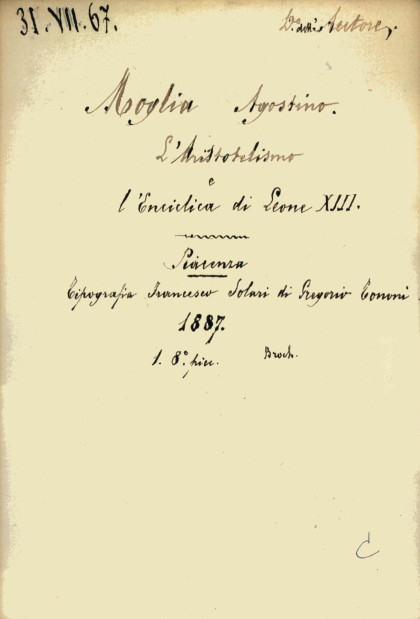 31. VII. 67.
D.º dell'Autore.
Moglia Agostino.
L'Aristotelismo
e
l'Enciclica di Leone XIII.
Piacenza
Tipografia Francesco Solari di Gregorio Tononi.
1887.
1. 8.º picc. Broch.
C